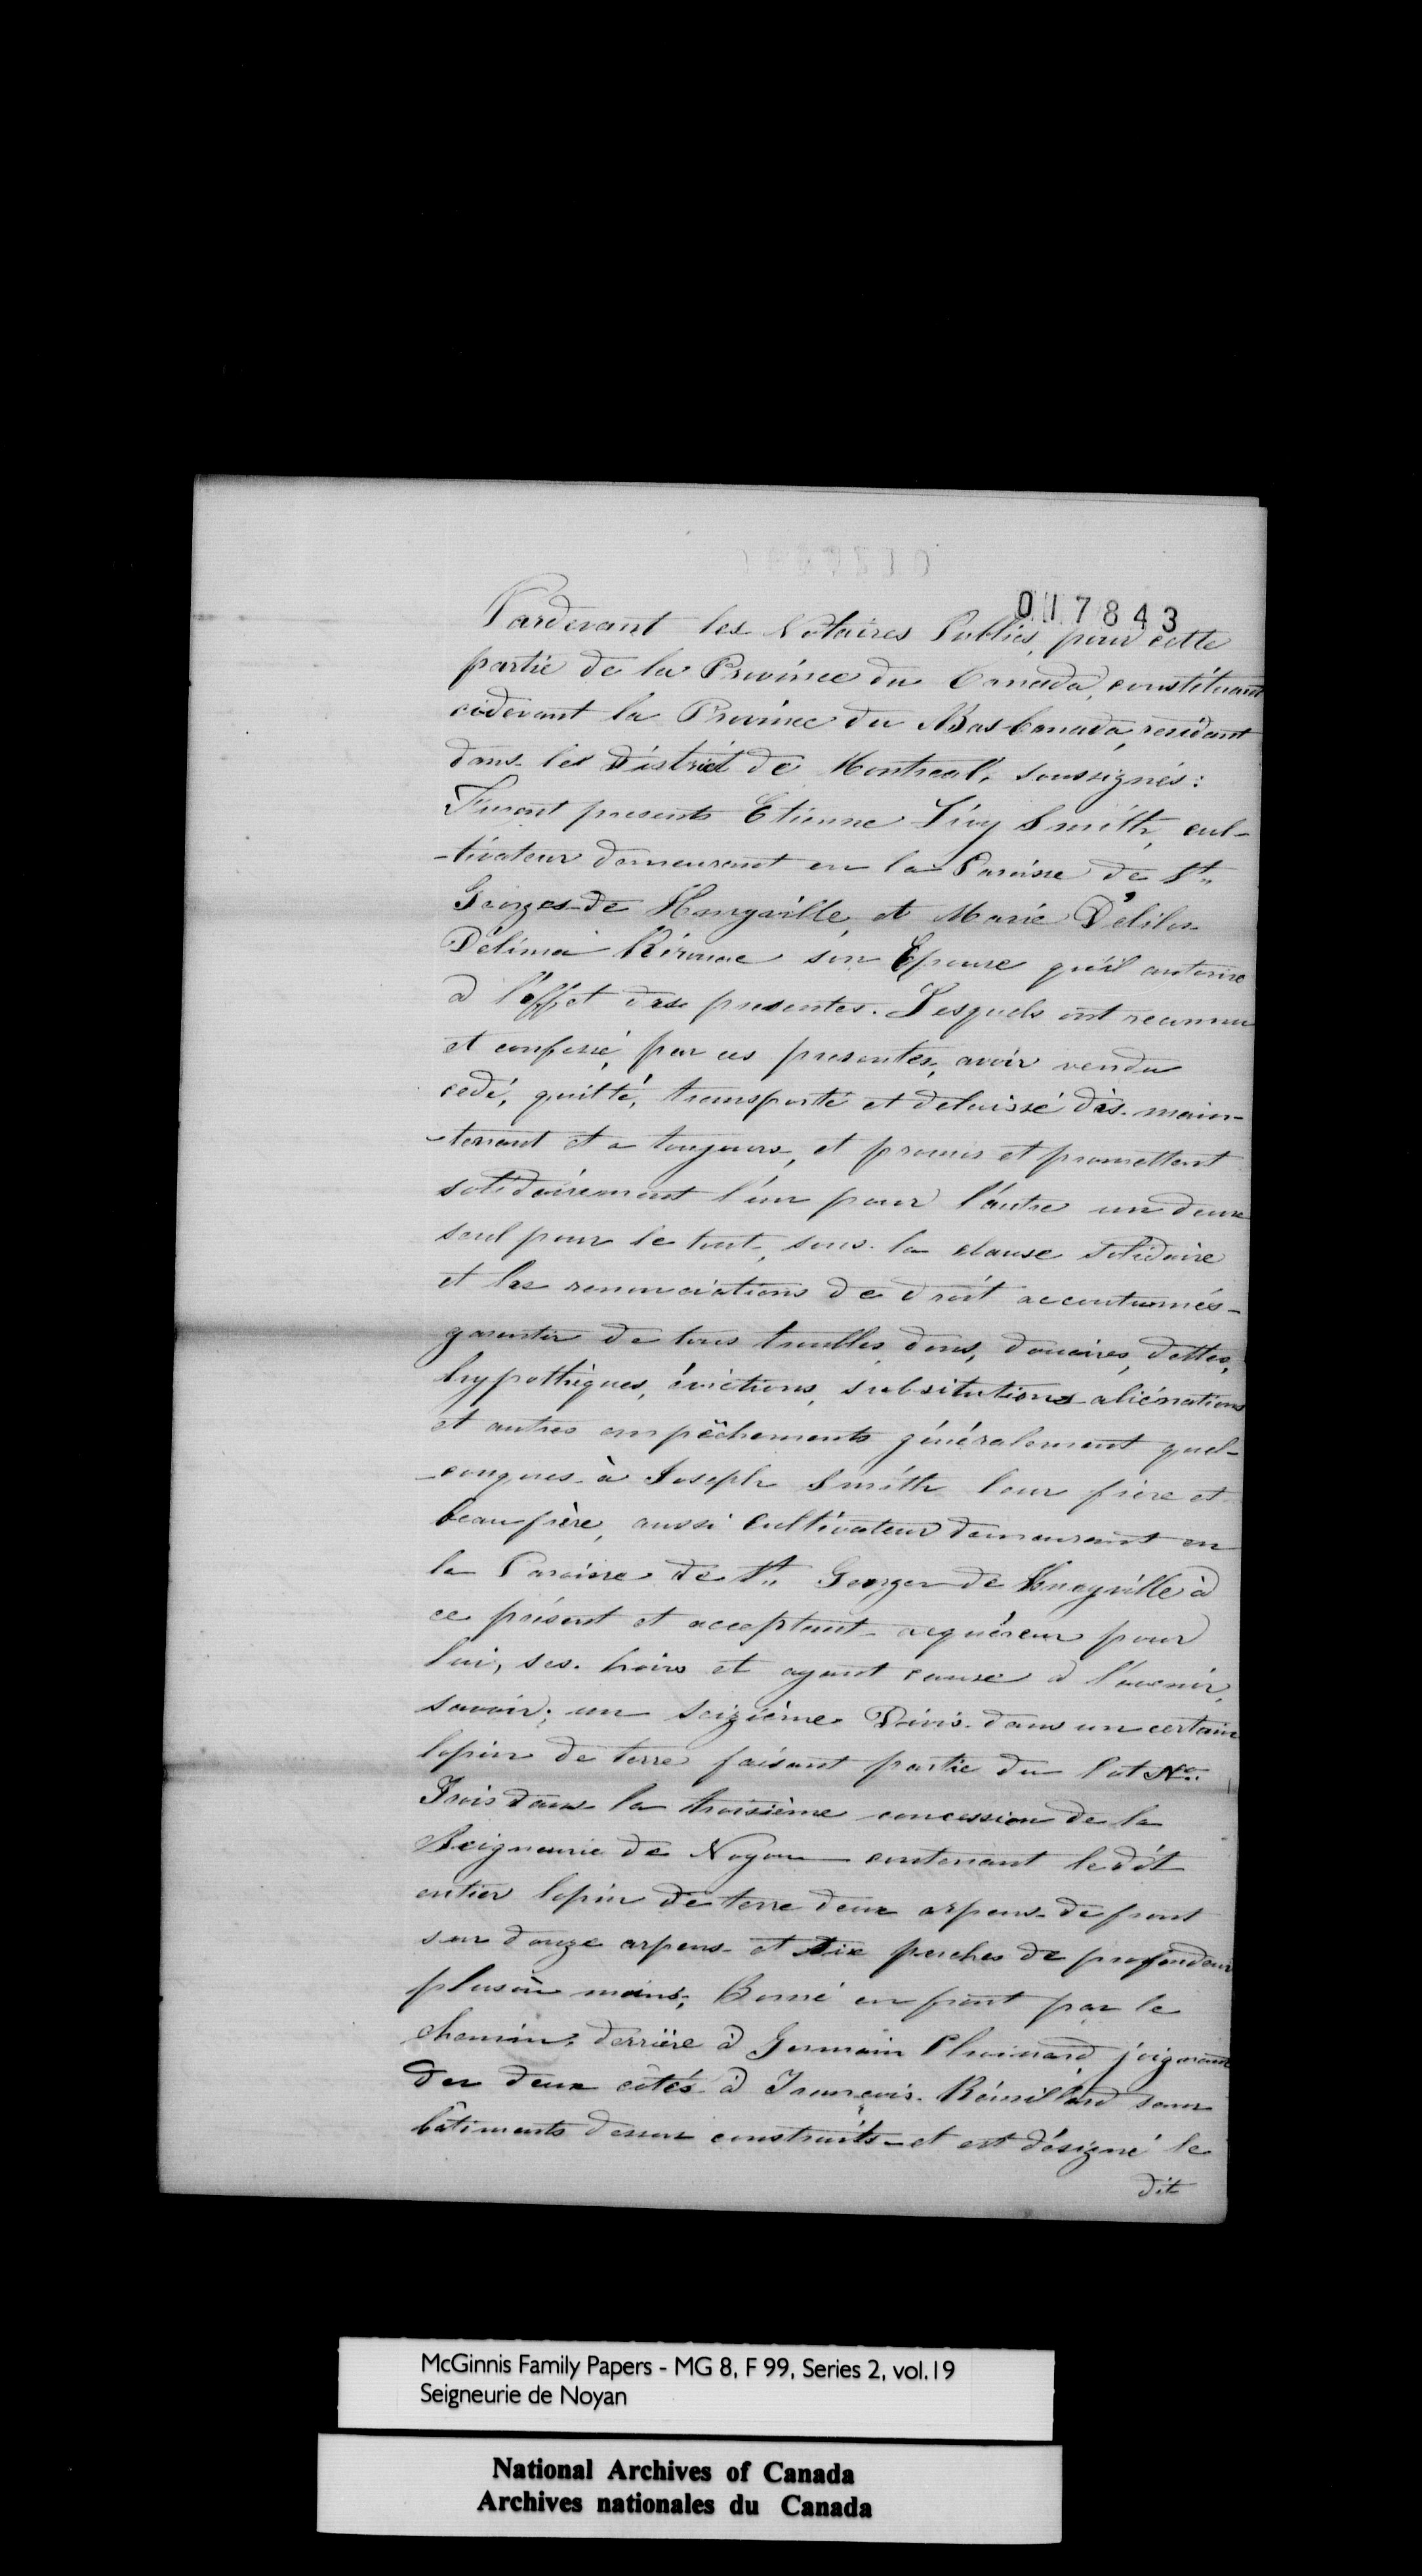 017843
Pardevant les Notaires Publics, pour cette
partie de la Province du Canada, constituant
cidevant la Province du Bas-Canada, residant
dans le District de Montreal, soussignés:
Furent presents Etienne Lévy Smith, cul-
-tivateur demeurant en la Paroisse de St.
Georges de Henryville, et Marie
Delima Kérouac son Epouse qu'il autorise
a l'effet des presentes. Lesquels ont reconnu
et confessé, par ces presentes, avoir vendu
cedé, quitté, transporté et delaissé dès main-
-tenant et a toujours, et promis et promettent
solidairement l'un pour l'autre un deux
seul pour le tout, sous la clause solidaire
et les renonciations de droit accoutumés-
garantir de tous troubles, dons, douaires, dettes,
hypothèques, évictions, subsitutions aliénations
et autres empêchements généralement quel-
-conques à Joseph Smith leur frère et
beaufrère, aussi Cultivateur demeurant en
la Paroisse de St. Georges de Henryville à
ce présent et acceptant acquéreur pour
lui, ses hoirs et ayant cause à l'avenir,
savoir; un seizième Divis dans un certain
lopin de terre faisant partie du lot No.
Trois dans la troisième concession de la
Seigneurie de Noyan contenant le dit
entier lopin de terre deux arpens de front
sur douze arpens et dix perches de profondeur
plus ou moins; Borné en front par le
chemin, derrière à Germain Chouinard, joignant
des deux cotés à François Rémillard sans
bâtiments dessus construits - et est désigné le
dit
McGinnis Family Papers - MG 8, F 99, Series 2, vol.19
Seigneurie de Noyan
National Archives of Canada
Archives nationales du Canada